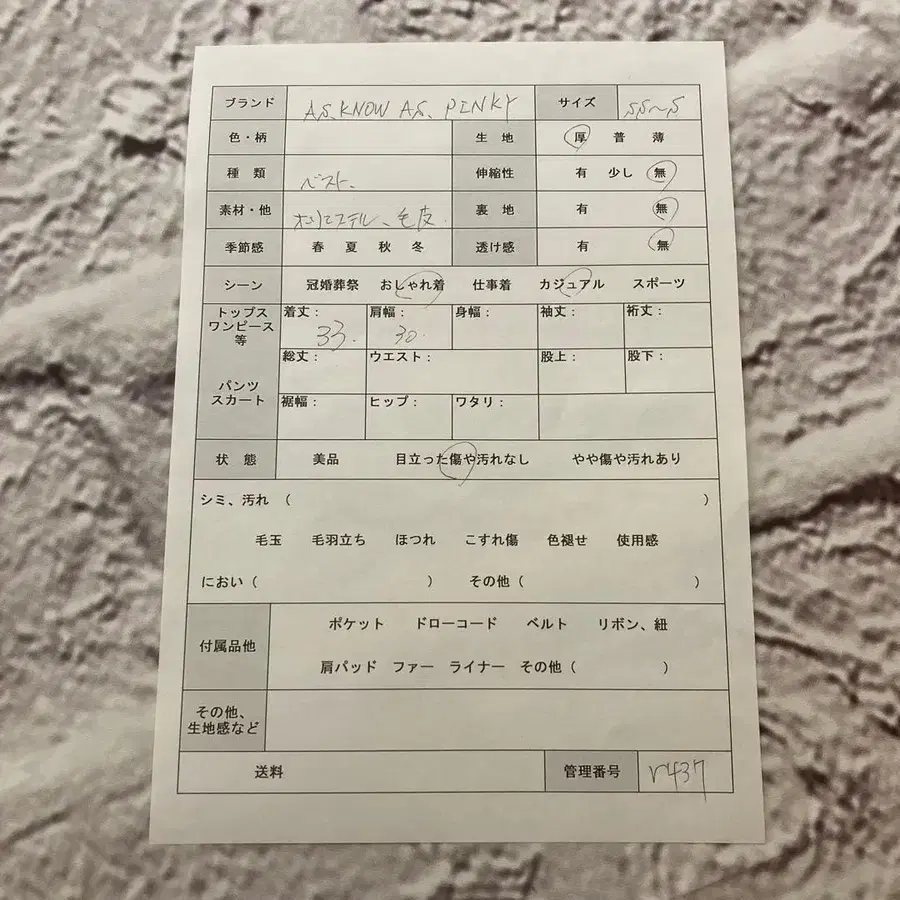 ブランド AS KNOW AS PINKY サイズ SS～S
色・柄 生地 厚 普 薄
種類 ベスト 伸縮性 有 少し 無
素材・他 ポリエステル、毛皮 裏地 有 無
季節感 春 夏 秋 冬 透け感 有 無
シーン 冠婚葬祭 おしゃれ着 仕事着 カジュアル スポーツ
トップス
ワンピース
等
着丈： 肩幅： 身幅： 袖丈： 裄丈：
33. 30.
パンツ
スカート
総丈： ウエスト： 股上： 股下：
裾幅： ヒップ： ワタリ：
状態 美品 目立った傷や汚れなし やや傷や汚れあり
シミ、汚れ（ ）
毛玉 毛羽立ち ほつれ こすれ傷 色褪せ 使用感
におい（ ） その他（ ）
付属品他
ポケット ドローコード ベルト リボン、紐
肩パッド ファー ライナー その他（ ）
その他、
生地感など
送料 管理番号 r437